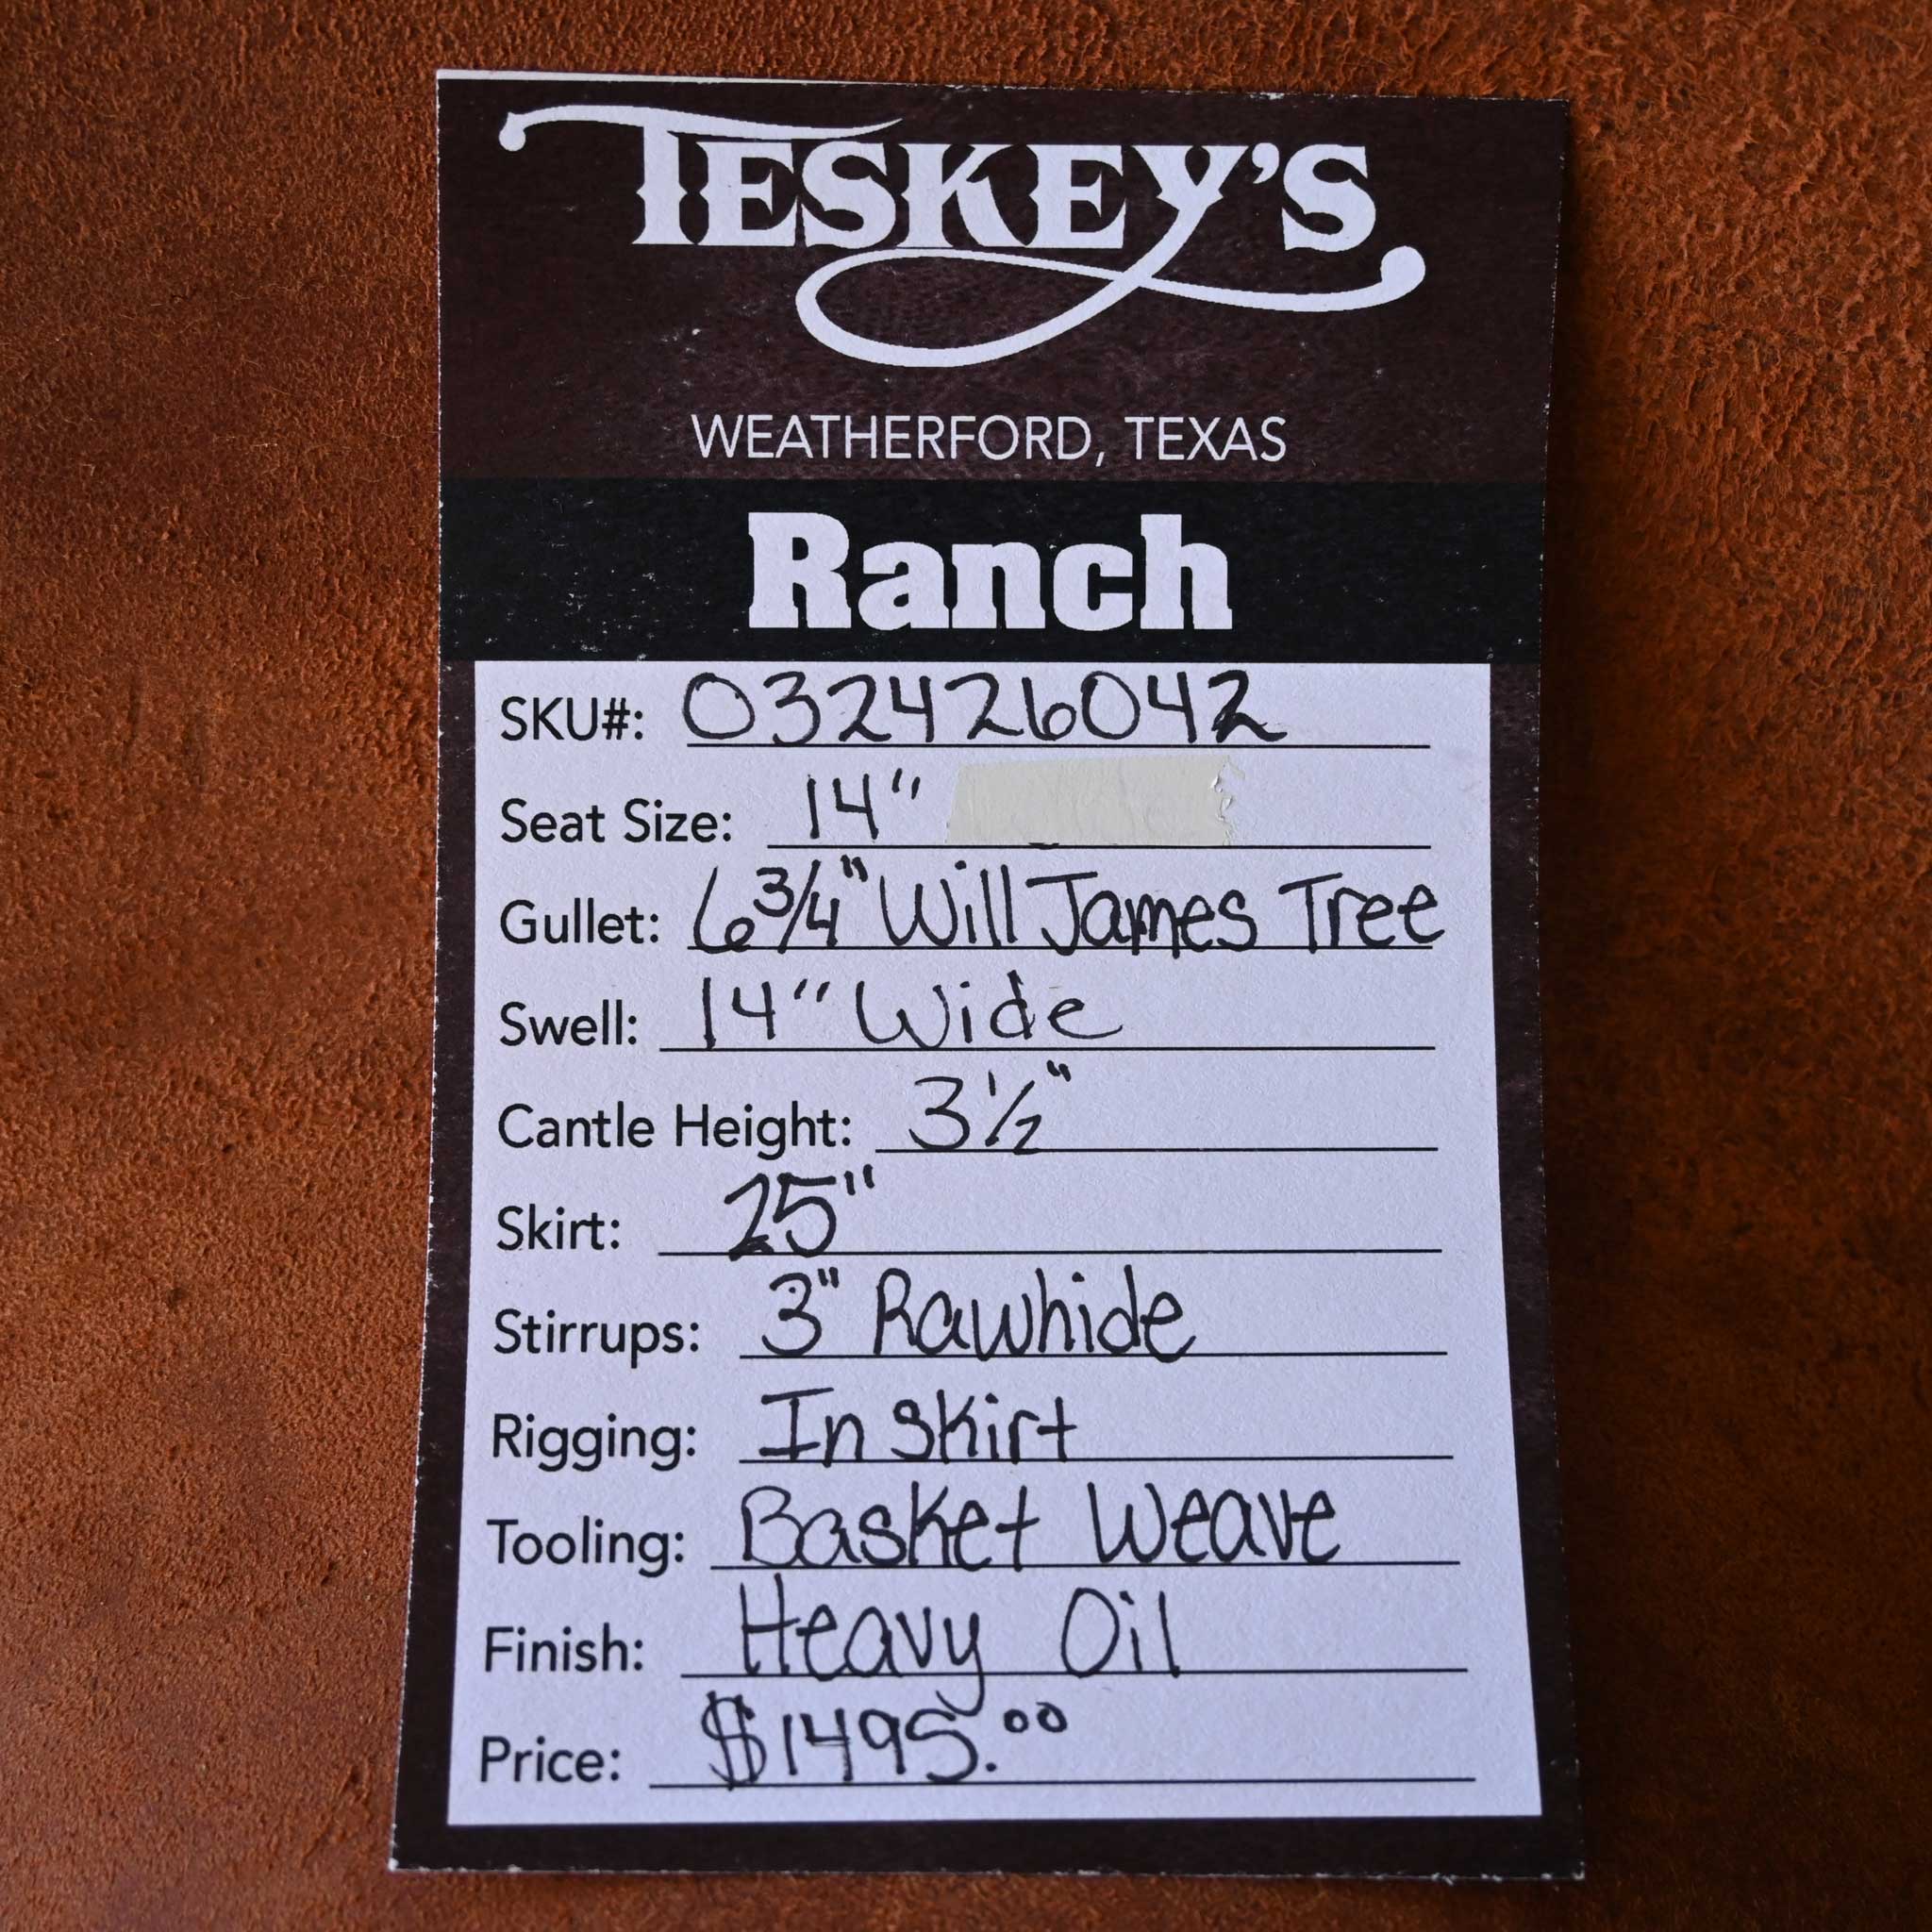 TESKEY'S
WEATHERFORD, TEXAS
Ranch
SKU#: 032426042
Seat Size: 14"
Gullet: 6 3/4" Will James Tree
Swell: 14" Wide
Cantle Height: 3 1/2"
Skirt: 25"
Stirrups: 3" Rawhide
Rigging: In Skirt
Tooling: Basket Weave
Finish: Heavy Oil
Price: $1495.00